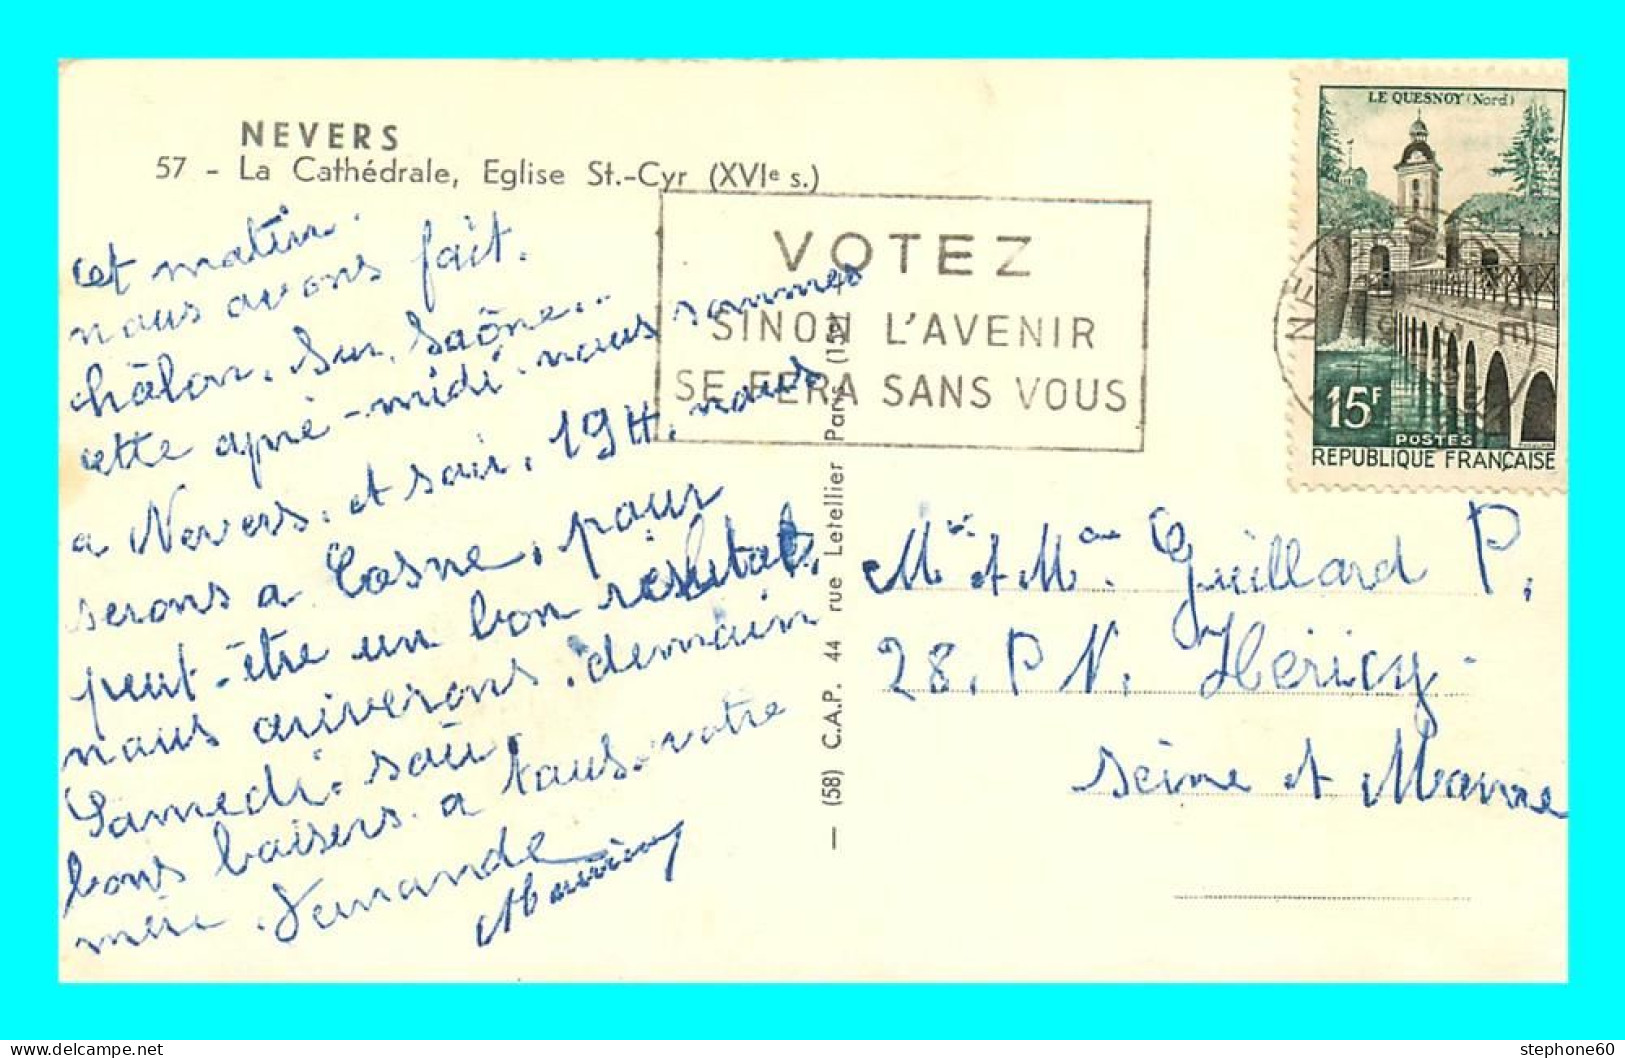 NEVERS
57 - La Cathédrale, Eglise St.-Cyr (XVIe s.)
cet matin.
nous avons fait.
châlon. Sur. Saône...
cette apré-midi. nous sommes
a Nevers. et soir. 19H. nous
serons a Cosne. pour
peut-être un bon resultat.
nous ariverons. demain
Samedi. soir.
bons baisers. a tous. votre
mère. Fernande
VOTEZ
SINON L'AVENIR
SE FERA SANS VOUS
LE QUESNOY (Nord)
NEVERS
NIEVRE
15F
POSTES
REPUBLIQUE FRANÇAISE
— (58) C.A.P. 44 rue Letellier Paris (15e)
Mr et Mme Guillard P.
28. P N. Héricy.
Seine et Marne
stephone60